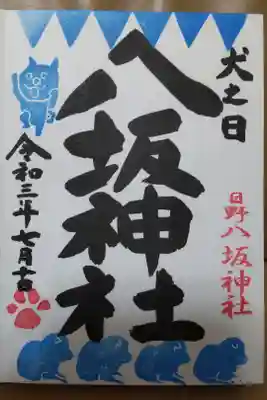 犬之日
日野八坂神社
八坂神社
令和三年七月十一日